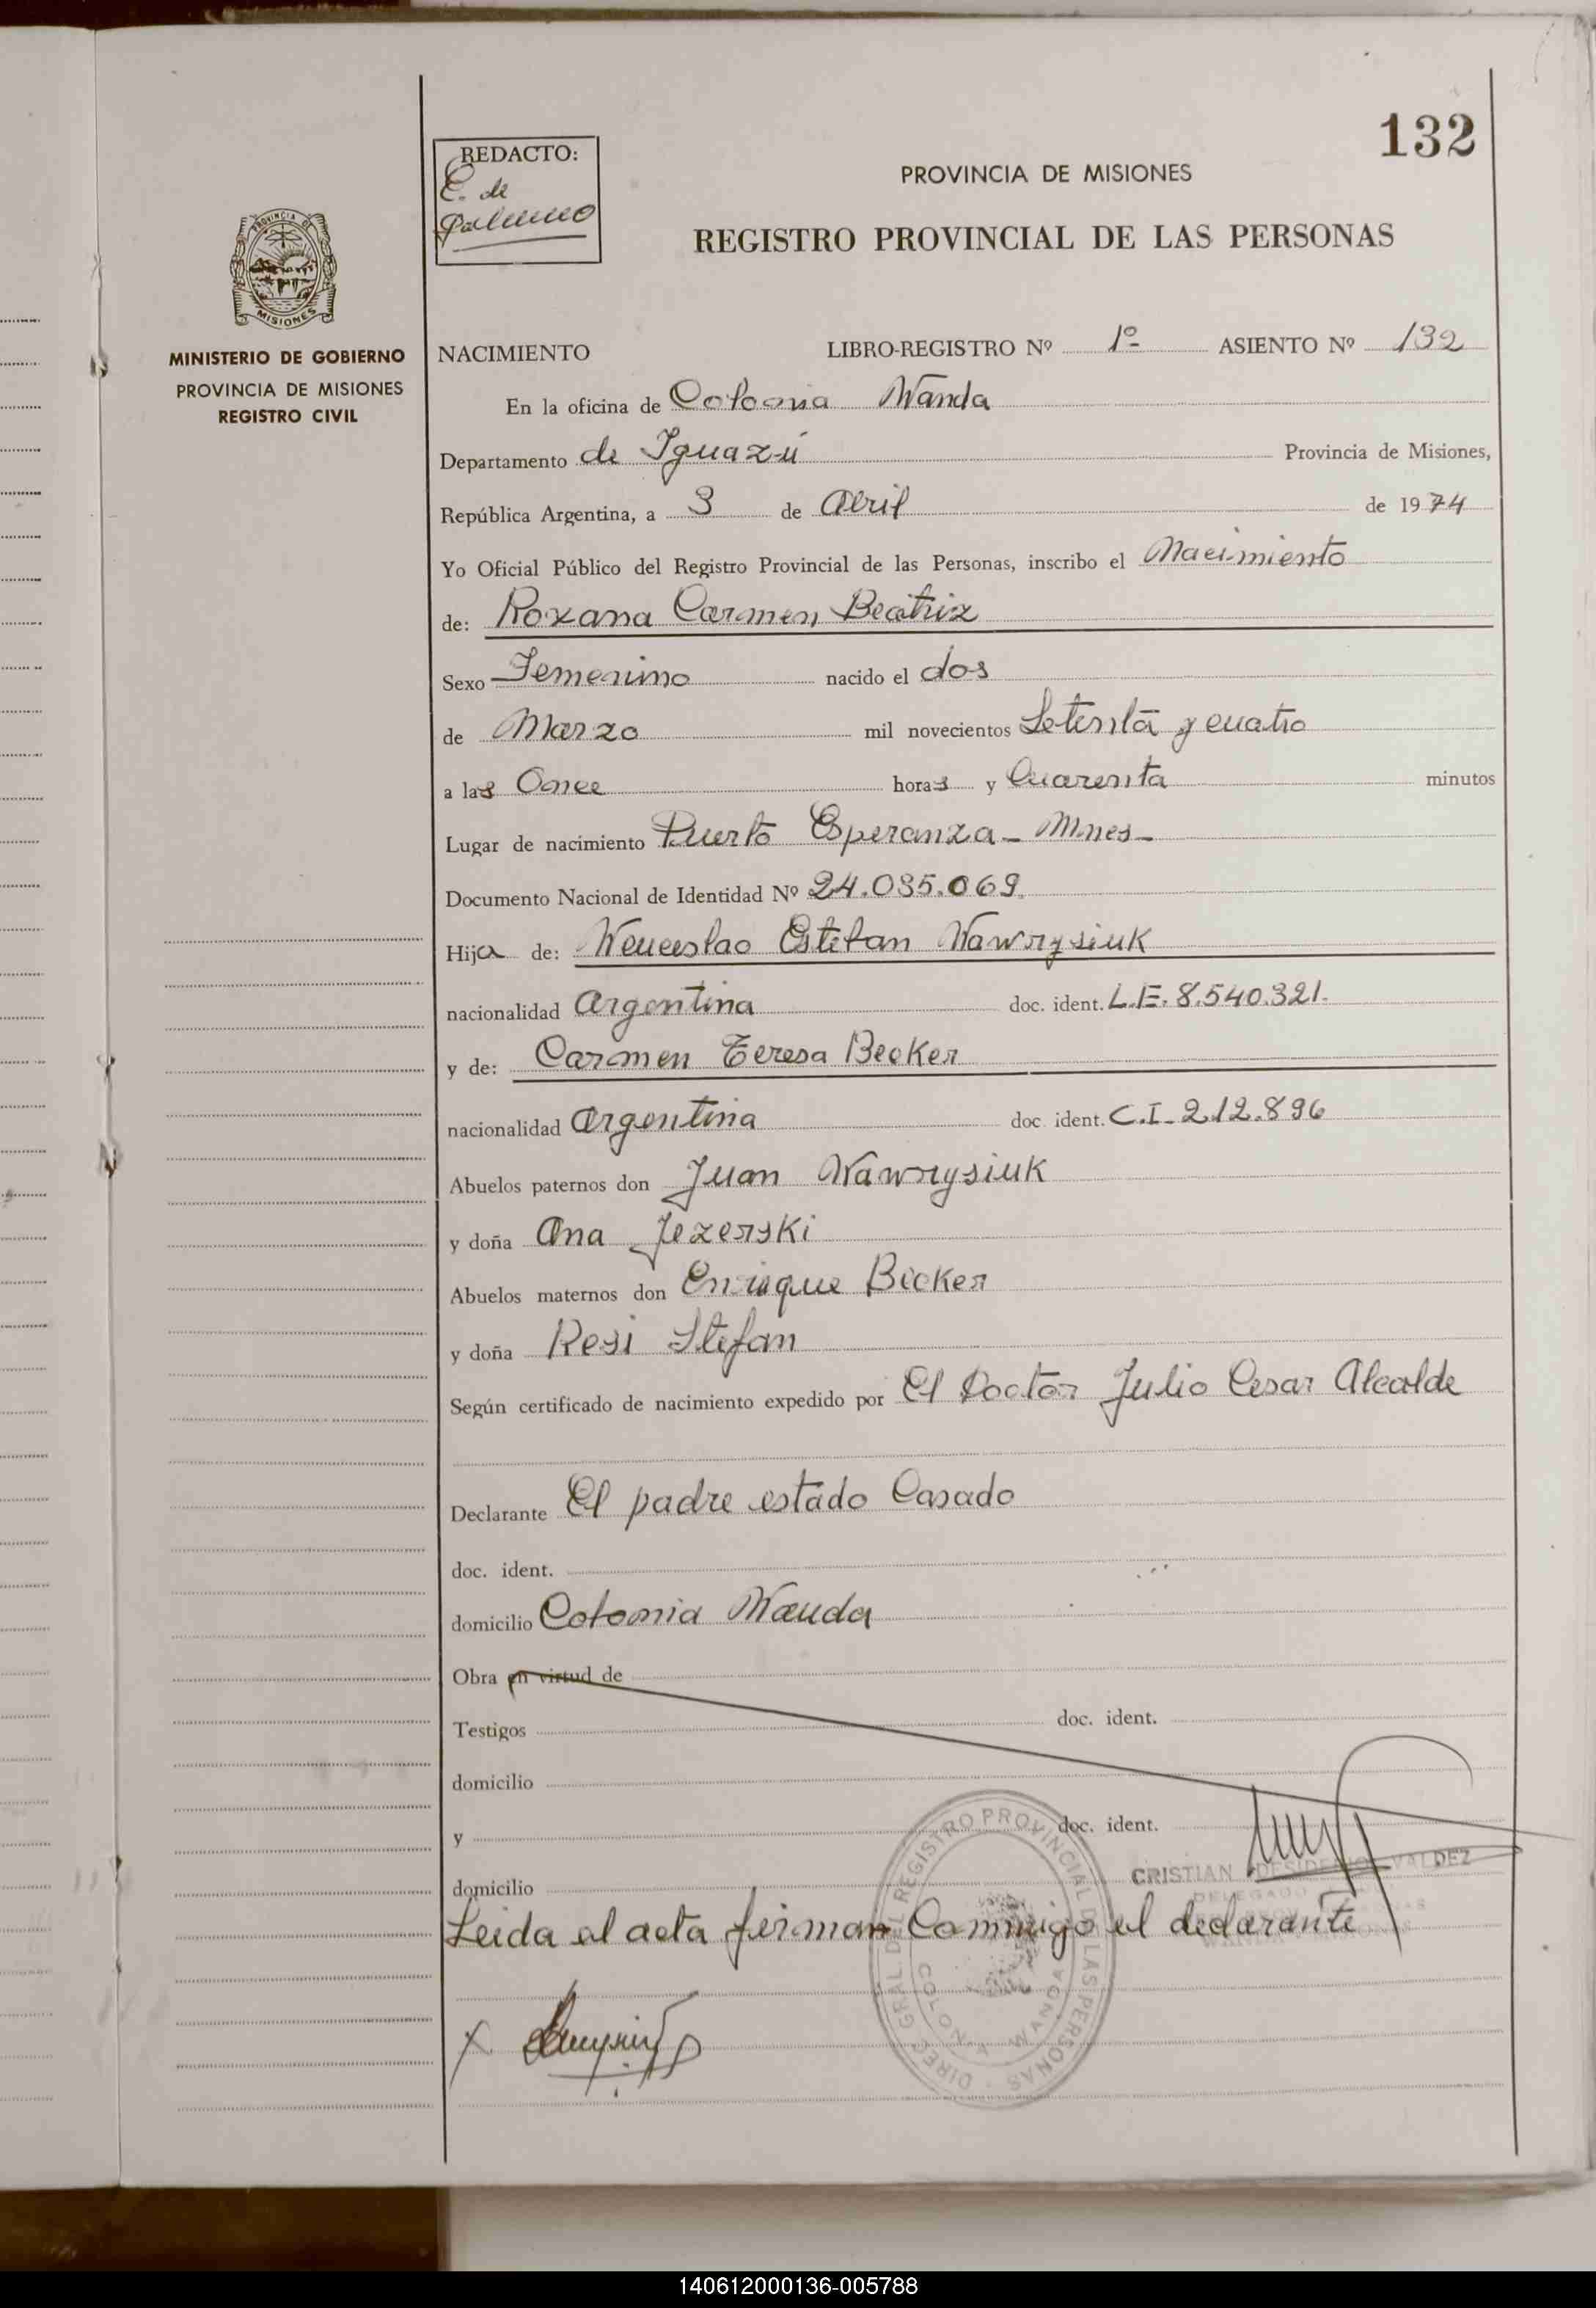 132
REDACTO:
E. de
Palumo
PROVINCIA DE MISIONES
REGISTRO PROVINCIAL DE LAS PERSONAS
PROVINCIA DE
MISIONES
MINISTERIO DE GOBIERNO
PROVINCIA DE MISIONES
REGISTRO CIVIL
NACIMIENTO LIBRO-REGISTRO Nº 1º ASIENTO Nº 132
En la oficina de Colonia Wanda
Departamento de Iguazú Provincia de Misiones,
República Argentina, a 3 de Abril de 1974
Yo Oficial Público del Registro Provincial de las Personas, inscribo el Nacimiento
de: Roxana Carmen Beatriz
Sexo Femenino nacido el dos
de Marzo mil novecientos Setenta y cuatro
a las Once horas y Cuarenta minutos
Lugar de nacimiento Puerto Esperanza - Mnes -
Documento Nacional de Identidad Nº 24.035.069.
Hija de: Wenceslao Esteban Wawrzysiuk
nacionalidad Argentina doc. ident. L.E. 8.540.321.
y de: Carmen Teresa Becker
nacionalidad Argentina doc. ident. C.I. 212.896
Abuelos paternos don Juan Wawrzysiuk
y doña Ana Jezerski
Abuelos maternos don Enrique Becker
y doña Resi Stefan
Según certificado de nacimiento expedido por El Doctor Julio Cesar Alcalde
Declarante El padre estado Casado
doc. ident.
domicilio Colonia Wanda
Obra en virtud de
Testigos doc. ident.
domicilio
y doc. ident.
domicilio
CRISTIAN DESIDERIO VALDEZ
DELEGADO
Leida el acta firman Conmigo el declarante
DIREC. GRAL. DEL REGISTRO PROVINCIAL DE LAS PERSONAS
COLONIA WANDA
X
140612000136-005788